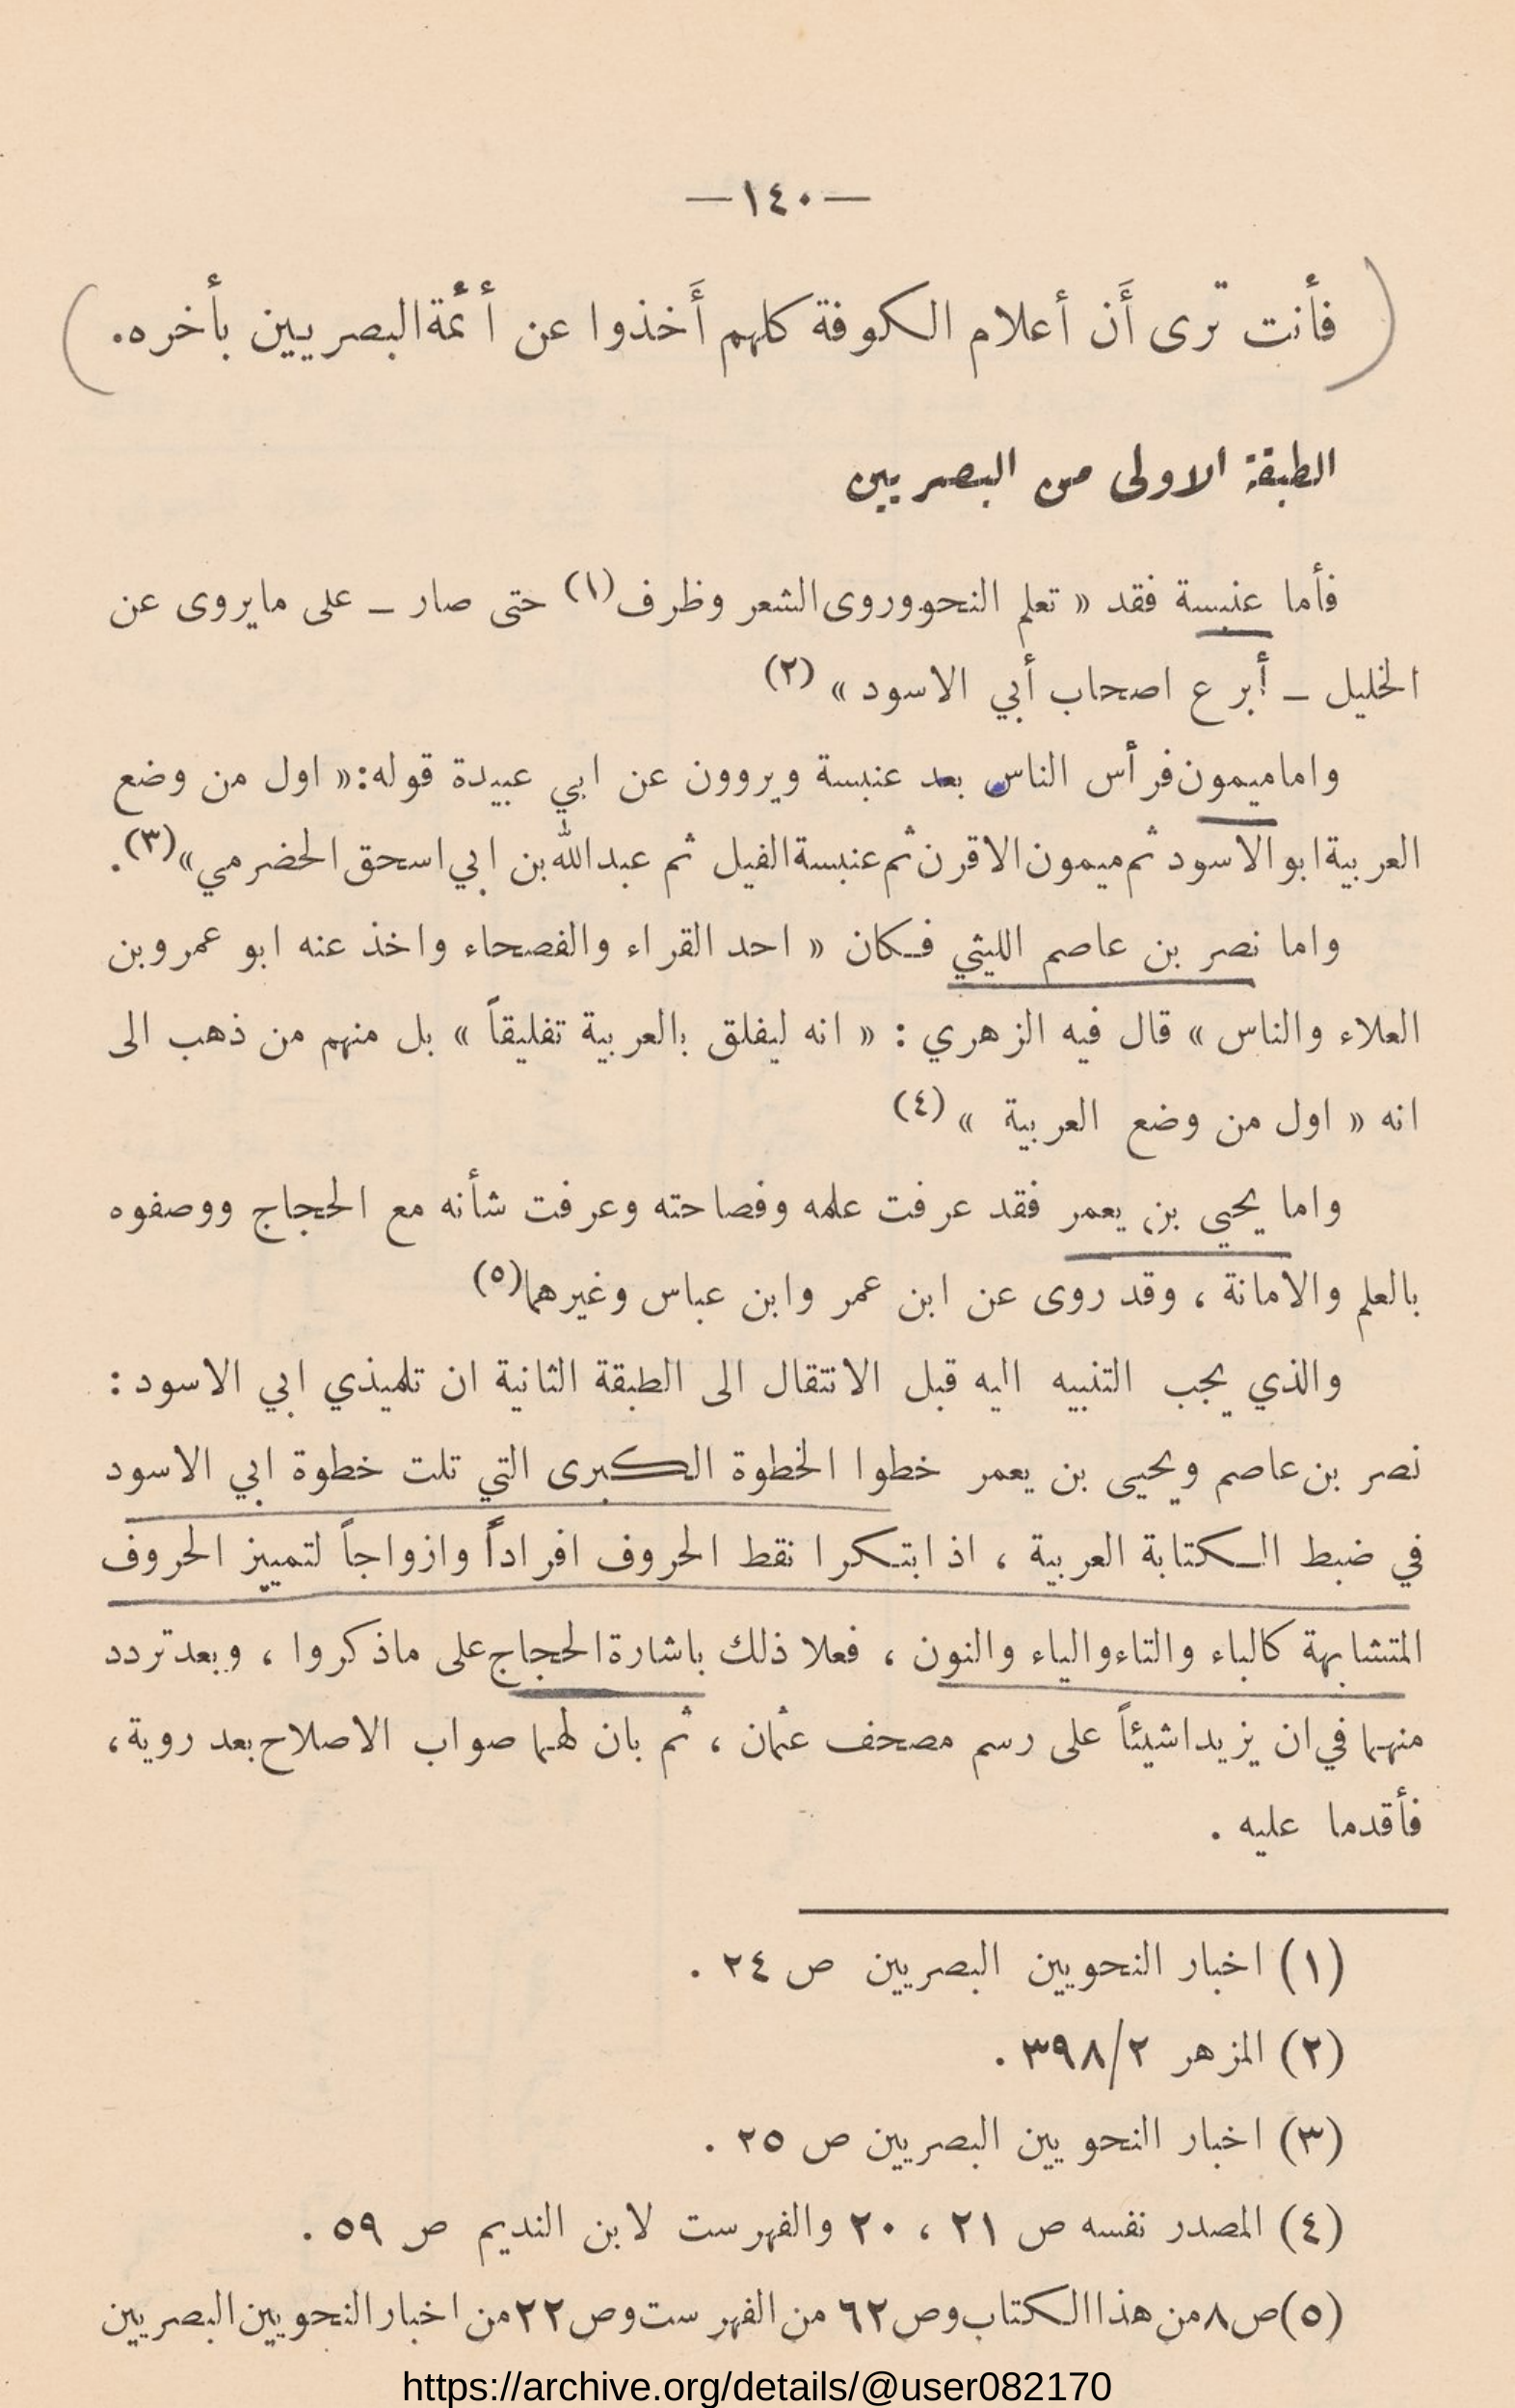 —١٤٠—
فأنت ترى أَن أعلام الكوفة كلهم أَخذوا عن أئمة البصريين بأخره.
الطبقة الاولى من البصريين
فأما عنبسة فقد « تعلم النحو وروى الشعر وظرف (١) حتى صار ــ على ما يروى عن
الخليل ــ أبرع اصحاب أبي الاسود » (٢)
واما ميمون فرأس الناس بعد عنبسة ويروون عن ابي عبيدة قوله: « اول من وضع
العربية ابو الاسود ثم ميمون الاقرن ثم عنبسة الفيل ثم عبدالله بن ابي اسحق الحضرمي » (٣).
واما نصر بن عاصم الليثي فكان « احد القراء والفصحاء واخذ عنه ابو عمرو بن
العلاء والناس » قال فيه الزهري : « انه ليفلق بالعربية تفليقاً » بل منهم من ذهب الى
انه « اول من وضع العربية » (٤)
واما يحيى بن يعمر فقد عرفت علمه وفصاحته وعرفت شأنه مع الحجاج ووصفوه
بالعلم والامانة ، وقد روى عن ابن عمر وابن عباس وغيرهما (٥)
والذي يجب التنبيه اليه قبل الانتقال الى الطبقة الثانية ان تلميذي ابي الاسود :
نصر بن عاصم ويحيى بن يعمر خطوا الخطوة الكبرى التي تلت خطوة ابي الاسود
في ضبط الكتابة العربية ، اذ ابتكرا نقط الحروف افراداً وازواجاً لتمييز الحروف
المتشابهة كالباء والتاء والياء والنون ، فعلا ذلك باشارة الحجاج على ما ذكروا ، وبعد تردد
منهما في ان يزيدا شيئاً على رسم مصحف عثمان ، ثم بان لهما صواب الاصلاح بعد روية ،
فأقدما عليه .
(١) اخبار النحويين البصريين ص ٢٤ .
(٢) المزهر ٣٩٨/٢ .
(٣) اخبار النحويين البصريين ص ٢٥ .
(٤) المصدر نفسه ص ٢١ ، ٢٠ والفهرست لابن النديم ص ٥٩ .
(٥) ص ٨ من هذا الكتاب وص ٦٢ من الفهرست وص ٢٢ من اخبار النحويين البصريين
https://archive.org/details/@user082170